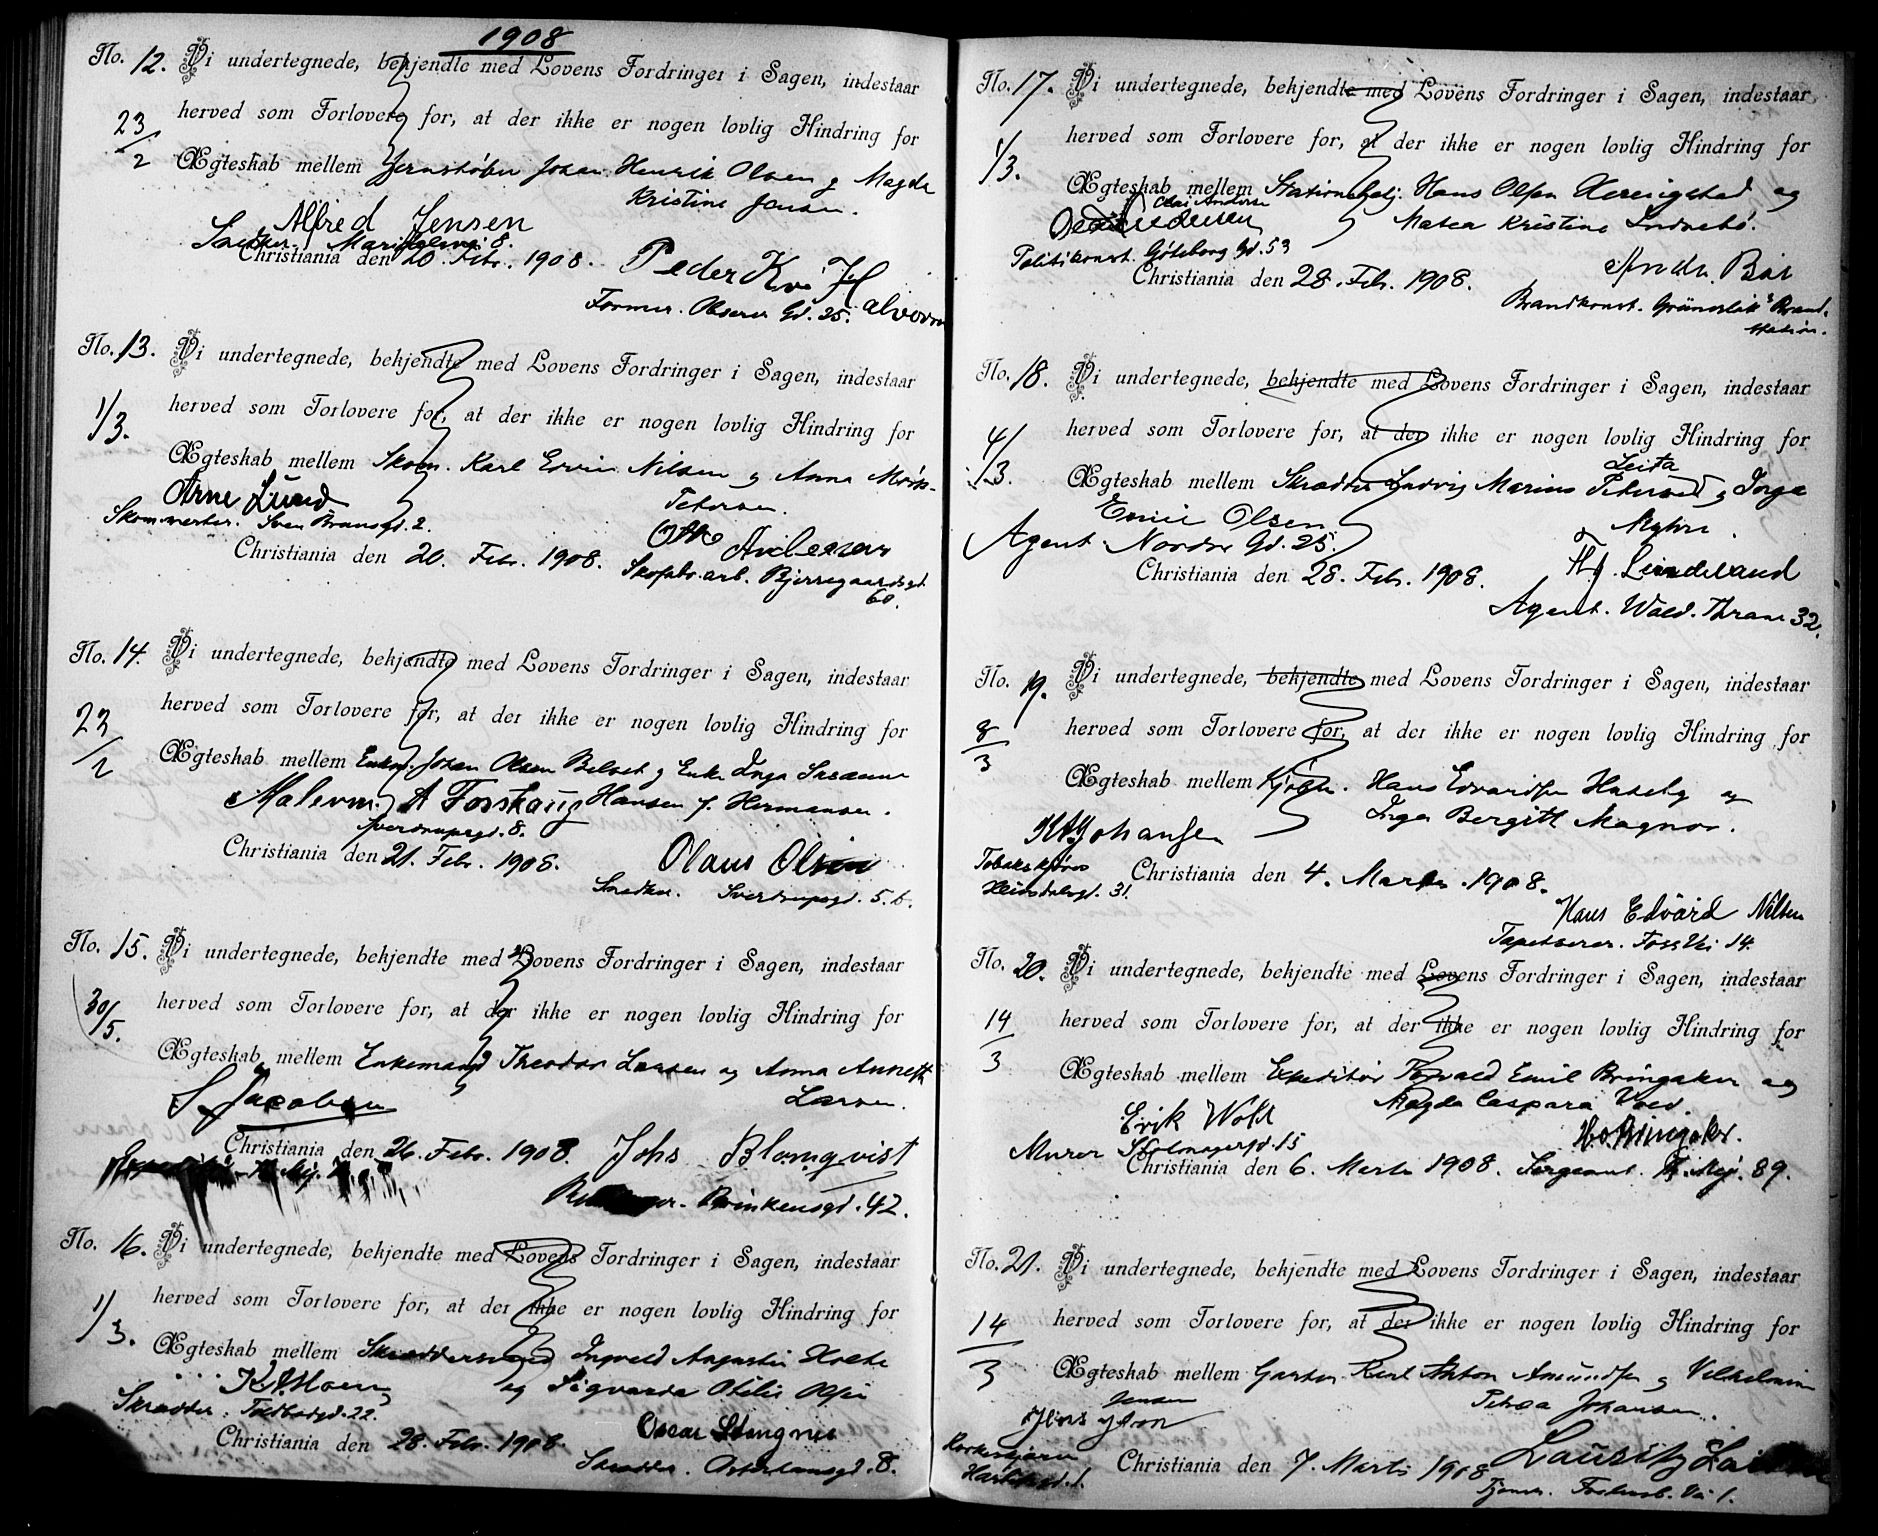 1908
No. 12. Vi undertegnede, bekjendte med Lovens Fordringer i Sagen, indestaar
23/2 herved som Forlovere for, at der ikke er nogen lovlig Hindring for
Ægteskab mellem Jernstøber Johan Henrik Olsen og Magda
Kristine Jensen.
Alfred Jensen
8.
Christiania den 20. Febr. 1908.
Peder Kr. Halvorsen
Former. Gd. 25.
No. 13. Vi undertegnede, bekjendte med Lovens Fordringer i Sagen, indestaar
1/3. herved som Forlovere for, at der ikke er nogen lovlig Hindring for
Ægteskab mellem Skom. Karl Ervin Nilsen og Anna Mørk-
Petersen.
Arne Lund
Skomester. Sven Brunsgd. 2.
Christiania den 20. Febr. 1908.
Otto
Skofabr.arb. Bjerregaardsgd.
60.
No. 14. Vi undertegnede, bekjendte med Lovens Fordringer i Sagen, indestaar
23/2 herved som Forlovere for, at der ikke er nogen lovlig Hindring for
Ægteskab mellem Enkem. Johan Olsen og Enke Inga Susanne
Hansen f. Hermansen.
Malerm. A Forshaug
Sverdrupsgd. 8.
Christiania den 21. Febr. 1908.
Olaus Olsen
Snedker. Sverdrupsgd. 5.b.
No. 15. Vi undertegnede, bekjendte med Lovens Fordringer i Sagen, indestaar
30/5. herved som Forlovere for, at der ikke er nogen lovlig Hindring for
Ægteskab mellem Enkemand Theodor Larsen og Anna Annette
Larsen.
S. Jacobsen
Christiania den 26. Febr. 1908.
Johs Blomqvist
Brinkensgd. 42.
No. 16. Vi undertegnede, bekjendte med Lovens Fordringer i Sagen, indestaar
1/3. herved som Forlovere for, at der ikke er nogen lovlig Hindring for
Ægteskab mellem Skræddersvend Ingvald Augustin Holte
og Sigvarda Otilie Olsen
K. A. Moen
Skrædder. Toldbodgd. 22.
Christiania den 28. Febr. 1908.
Oscar
Skrædder. 8.
No. 17. Vi undertegnede, bekjendte med Lovens Fordringer i Sagen, indestaar
1/3. herved som Forlovere for, at der ikke er nogen lovlig Hindring for
Ægteskab mellem Stationsbetj. Hans Olsen og
Matea Kristine
Politikonst. Gøteborg Gd. 53
Christiania den 28. Feb. 1908.
Andr. Bar
Brandkonst. Grünerløk's Brand-
station.
No. 18. Vi undertegnede, bekjendte med Lovens Fordringer i Sagen, indestaar
4/3. herved som Forlovere for, at der ikke er nogen lovlig Hindring for
Ægteskab mellem Skrædder Ludvig Marius og Inga
Emil Olsen
Agent Nordre Gd. 25.
Christiania den 28. Feb. 1908.
Th. J. Lindeland
Agent. Wald. Thrane 32.
No. 19. Vi undertegnede, bekjendte med Lovens Fordringer i Sagen, indestaar
8/3 herved som Forlovere for, at der ikke er nogen lovlig Hindring for
Ægteskab mellem Hans Edvardsen og
Inga Bergitt Magnor.
Johansen
31.
Christiania den 4. Marts 1908.
Hans Edvard Nilsen
Tapetserer. Foss Vei 14.
No. 20. Vi undertegnede, bekjendte med Lovens Fordringer i Sagen, indestaar
14/3 herved som Forlovere for, at der ikke er nogen lovlig Hindring for
Ægteskab mellem Expeditør Torvald Emil Bringaker og
Magda Caspara Vold.
Erik Wold
Murer 15
Christiania den 6. Marts 1908.
H. O. Bringaker.
Sergeant. 89.
No. 21. Vi undertegnede, bekjendte med Lovens Fordringer i Sagen, indestaar
14/3 herved som Forlovere for, at der ikke er nogen lovlig Hindring for
Ægteskab mellem Gartner Karl Anton Amundsen og Vilhelmine
Petrea Johansen.
Jensen
Jens
Christiania den 7. Marts 1908
Lauritz
Vei 1.